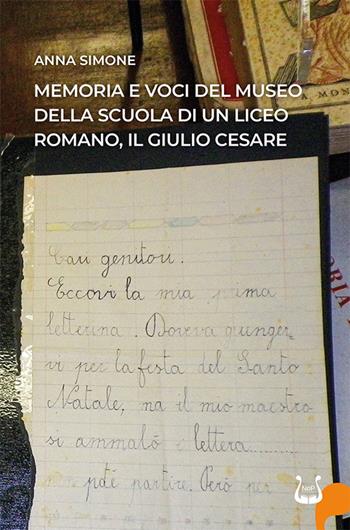 ANNA SIMONE
MEMORIA E VOCI DEL MUSEO
DELLA SCUOLA DI UN LICEO
ROMANO, IL GIULIO CESARE
A MON
Cari genitori.
Eccovi la mia prima
letterina. Doveva giunger
vi per la festa del Santo
Natale, ma il mio maestro
si ammalò e lettera.........
non poté partire. Però per
NeP